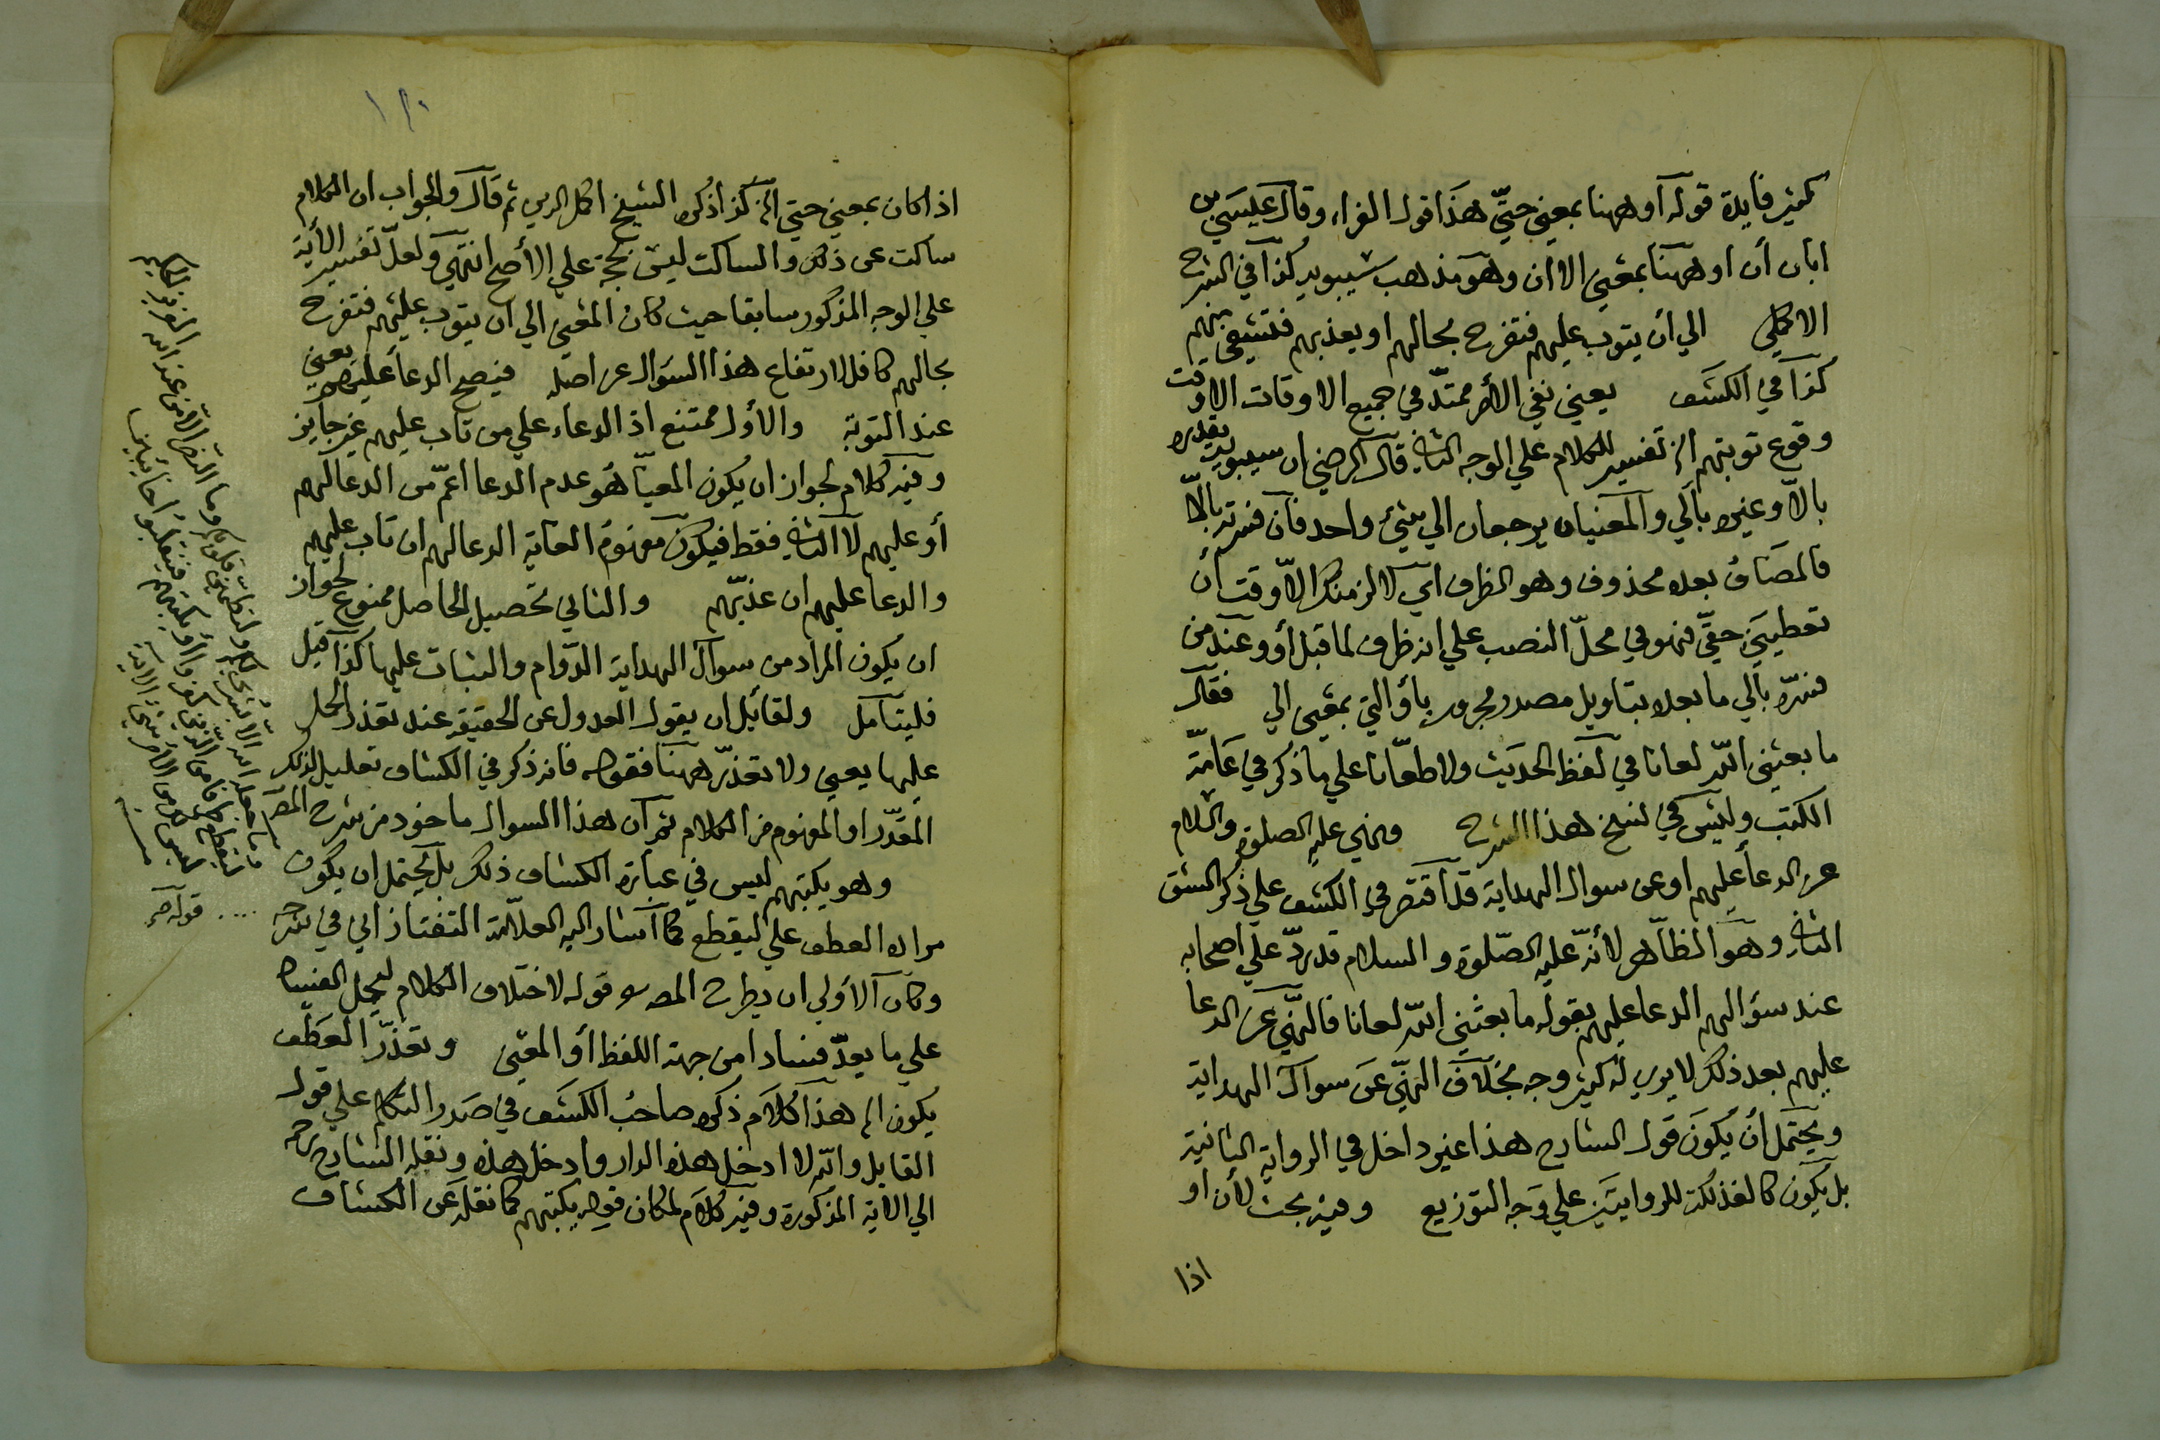 كثير فايدة قوله او ههنا بمعني حتيّ هذا قول الفراء وقال عيسي بن
ابان أن او ههنا بمعني الا ان وهو مذهب سيبويه كذا في الشرح
الاكملي الي أن يتوب عليهم فتفرح بحالهم او يعذبهم فتتشفي منهم
كذا في الكشف يعني نفي الأمر ممتدّ في جميع الاوقات الا وقت
وقوع توبتهم الخ تفسير للكلام علي الوجه الثاني قال الرضي ان سيبويه يقدره
بالاّ وغيره بالي والمعنيان يرجعان الي شيئ واحد فان فسرته بالاّ
فالمضاف بعده محذوف وهو الظرف اي لا لزمنك الاّ وقت أن
تعطيني حقيّ فهو في محلّ النصب علي انه ظرف لما قبل أو وعند من
فسّره بالي ما بعده بتاويل مصدر مجرور بأو التي بمعني الي فقال
ما بعثني الله لعانا في لفظ الحديث ولا طعّانا علي ما ذكر في عامّة
الكتب وليس في نسخ هذا الشرح ونهي عليه الصلوة والسلام
عن الدعأ عليهم او عن سوال الهداية قد اقتصر في الكشف علي ذكر الشق
الثاني وهو الظاهر لأنّه عليه الصّلوة والسلام قد ردّ علي اصحابه
عند سؤالهم الدعا عليهم بقوله ما بعثني الله لعانا فالنهّي عن الدعا
عليهم بعد ذلك لا يري له كثير وجه بخلاف النهّي عن سوال الهداية
ويحتمل أن يكون قول الشارح هذا غير داخل في الرواية الثانية
بل يكون كالفذلكة للروايتين علي وجه التوزيع وفيه بحث لأن او
اذا
١٢٠
اذا كان بمعني حتي الخ كذا ذكره الشيخ اكمل الدين ثم قال والجواب ان الكلام
ساكت عن ذلك والساكت ليس بحجة علي الأصح انتهي ولعلّ تفسير الأية
علي الوجه المذكور سابقا حيث كان المعني الي ان يتوب عليهم فتفرح
بحالهم كاف لارتفاع هذا السؤال عن اصله فيصح الدعأ عليهم يعني
عند التوبة والأول ممتنع اذ الدعاء علي من تاب عليهم غير جايز
وفيه كلام لجواز ان يكون المعيّا هو عدم الدعا اعمّ من الدعا لهم
أو عليهم لا الثاني فقط فيكون مفهوم الغاية الدعا لهم ان تاب عليهم
والدعا عليهم ان عذبّهم والثاني تحصيل الحاصل ممنوع لجواز
ان يكون المراد من سوال الهداية الدّوام والثبات عليها كذا قيل
فليتامل ولقائل ان يقول العدول عن الحقيقة عند تعذر الحمل
عليها يعني ولا تعذّر ههنا فقوله فانه ذكر في الكشاف تعليل لذلك
المقدّر او المفهوم من الكلام ثم ان هذا السوال ماخوذ من شرح المص
وهو يكبتهم ليس في عبارة الكشاف ذلك بل يحتمل ان يكون
مراده العطف علي ليقطع كما أشار اليه العلاّمة التفتازاني في شرحه
وكان الأولي ان يطرح المص قوله لاختلاف الكلام ليحمل الفساد
علي ما يعدّ فسادا من جهة اللفظ أو المعني وتعذّر العطف
يكون الخ هذا كلام ذكره صاحب الكشف في صدر التكلم علي قول
القايل والله لا ادخل هذه الدار وادخل هذه ونقله الشارح رحمه
الي الاية المذكورة وفيه كلام لمكان قوله يكبتهم كما نقله عن الكشاف
وما جعله الله الاّ بشري لكم ولتطمئن قلوبكم وما النصر الاّ من عند الله العزيز الحكيم
ليقطع طرفا من الّذين كفروا أو يكبتهم فينقلبوا خائبين
ليس لك من الأمر شيئ الآية
قوله